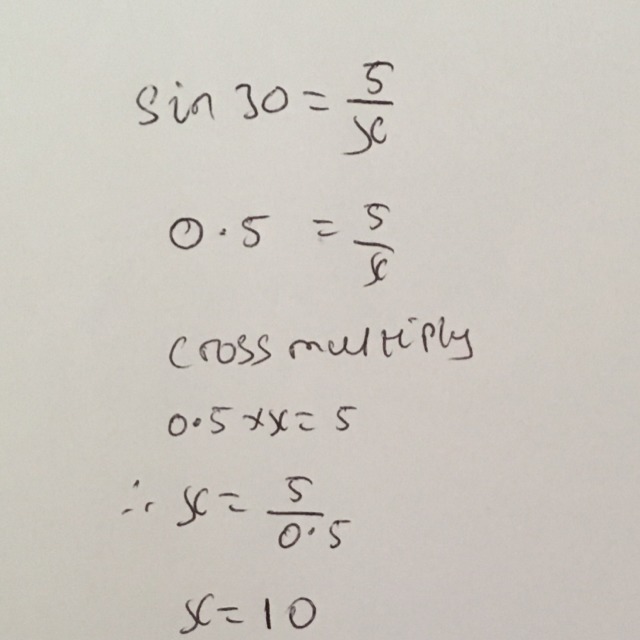 sin 30 = 5/x
0.5 = 5/x
Cross multiply
0.5 × x = 5
∴ x = 5/0.5
x = 10